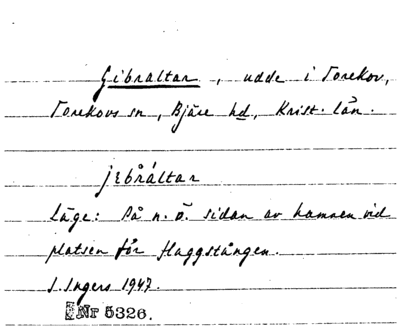 Gibraltar, udde i Torekov,
Torekovs sn, Bjäre hd, Krist. län.
jɛbråltar
Läge: På n. ö. sidan av hamnen vid
platsen för flaggstången.
I. Ingers 1947.
Nr 5326.